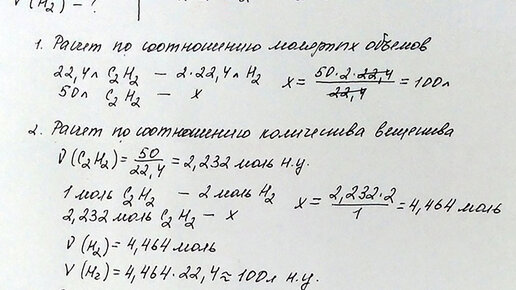 V(H₂) – ?
1. Расчет по соотношению молярных объемов
22,4л C₂H₂ – 2·22,4л H₂ x = 50·2·22,4/22,4 = 100л
50л C₂H₂ – x
2. Расчет по соотношению количества вещества
ν(C₂H₂) = 50/22,4 = 2,232 моль н.у.
1 моль C₂H₂ – 2 моль H₂ x = 2,232·2/1 = 4,464 моль
2,232 моль C₂H₂ – x
ν(H₂) = 4,464 моль
V(H₂) = 4,464·22,4 ≈ 100л н.у.